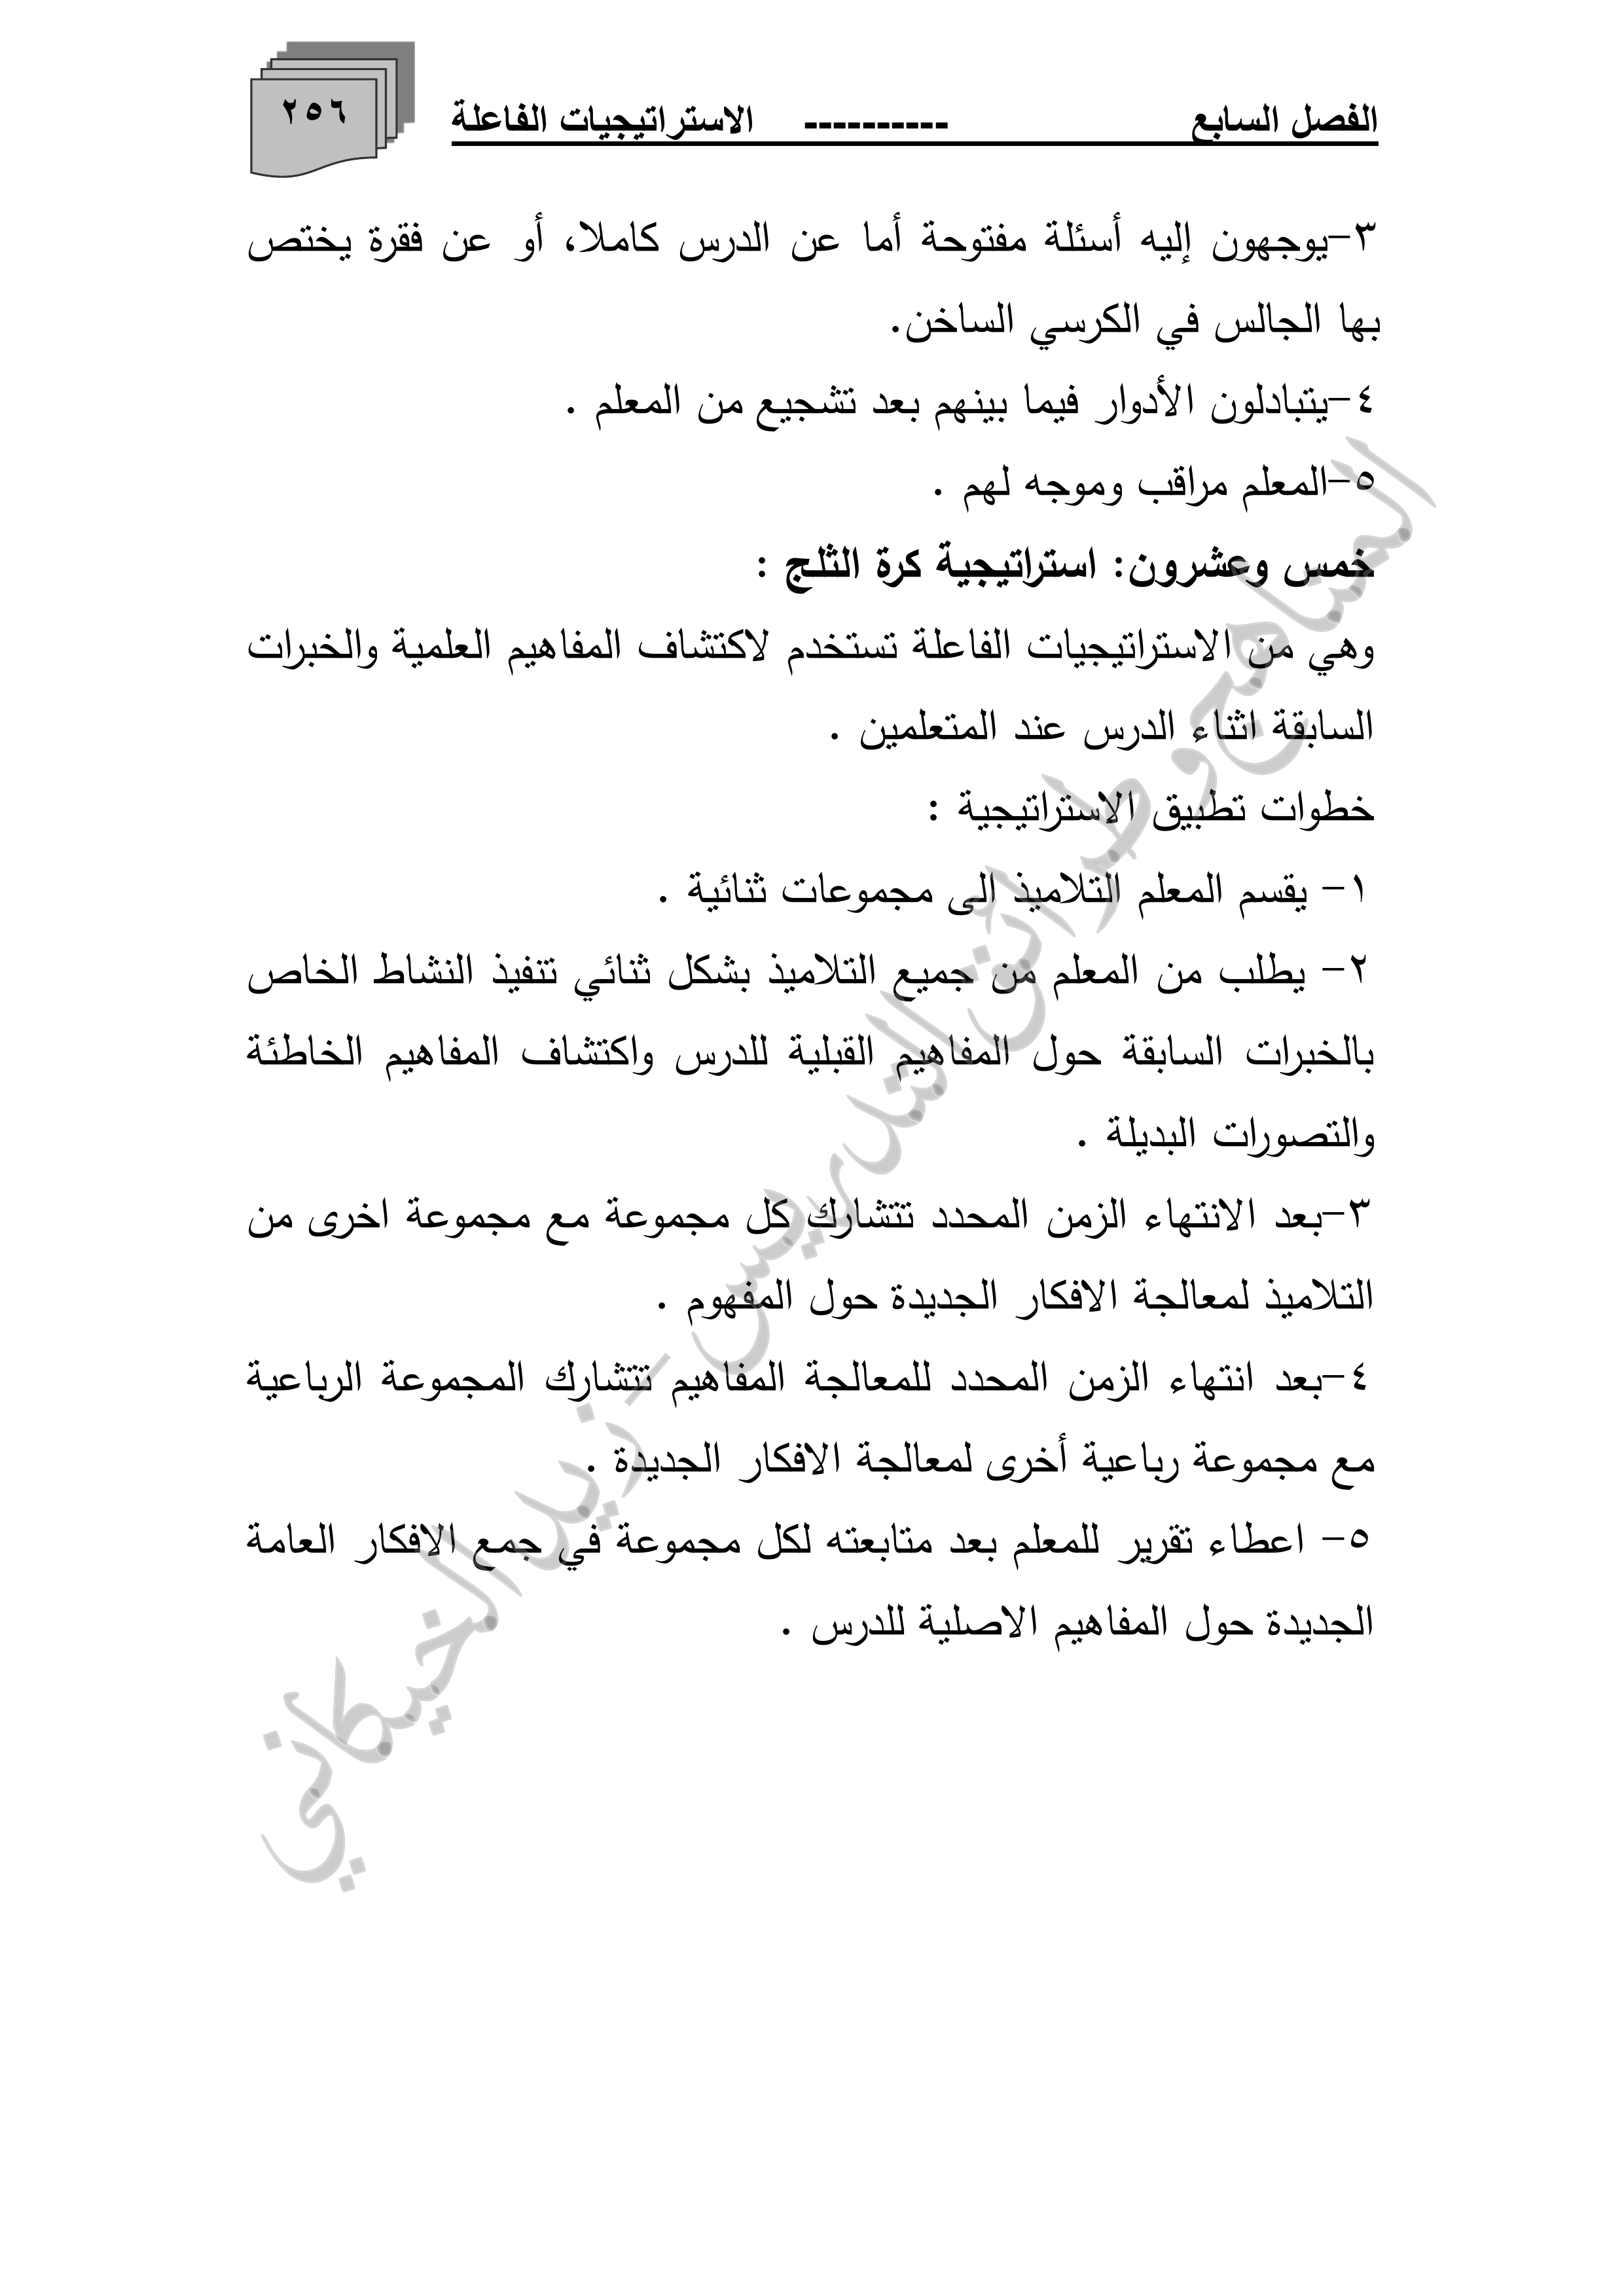 الفصل السابع ---------- الاستراتيجيات الفاعلة
٢٥٦
٣-يوجهون إليه أسئلة مفتوحة أما عن الدرس كاملا، أو عن فقرة يختص
بها الجالس في الكرسي الساخن.
٤-يتبادلون الأدوار فيما بينهم بعد تشجيع من المعلم .
٥-المعلم مراقب وموجه لهم .
خمس وعشرون: استراتيجية كرة الثلج :
وهي من الاستراتيجيات الفاعلة تستخدم لاكتشاف المفاهيم العلمية والخبرات
السابقة اثناء الدرس عند المتعلمين .
خطوات تطبيق الاستراتيجية :
١- يقسم المعلم التلاميذ الى مجموعات ثنائية .
٢- يطلب من المعلم من جميع التلاميذ بشكل ثنائي تنفيذ النشاط الخاص
بالخبرات السابقة حول المفاهيم القبلية للدرس واكتشاف المفاهيم الخاطئة
والتصورات البديلة .
٣-بعد الانتهاء الزمن المحدد تتشارك كل مجموعة مع مجموعة اخرى من
التلاميذ لمعالجة الافكار الجديدة حول المفهوم .
٤-بعد انتهاء الزمن المحدد للمعالجة المفاهيم تتشارك المجموعة الرباعية
مع مجموعة رباعية أخرى لمعالجة الافكار الجديدة .
٥- اعطاء تقرير للمعلم بعد متابعته لكل مجموعة في جمع الافكار العامة
الجديدة حول المفاهيم الاصلية للدرس .
المناهج وطرائق التدريس - زيد الخيكاني